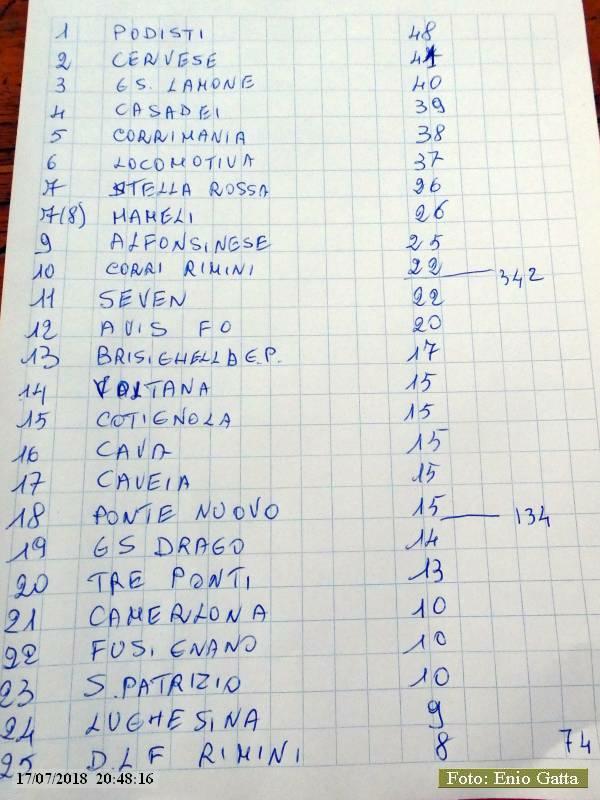 1 PODISTI 48
2 CERVESE 41
3 GS. LAMONE 40
4 CASADEI 39
5 CORRIMANIA 38
6 LOCOMOTIVA 37
7 STELLA ROSSA 26
7(8) MAMELI 26
9 ALFONSINESE 25
10 CORRI RIMINI 22 342
11 SEVEN 22
12 AVIS FO 20
13 BRISIGHELLA E.P. 17
14 VOLTANA 15
15 COTIGNOLA 15
16 CAVA 15
17 CAVEIA 15
18 PONTE NUOVO 15 134
19 GS DRAGO 14
20 TRE PONTI 13
21 CAMERLONA 10
22 FUSIGNANO 10
23 S.PATRIZIO 10
24 LUGHESINA 9
25 D.L.F RIMINI 8 74
17/07/2018 20:48:16
Foto: Enio Gatta